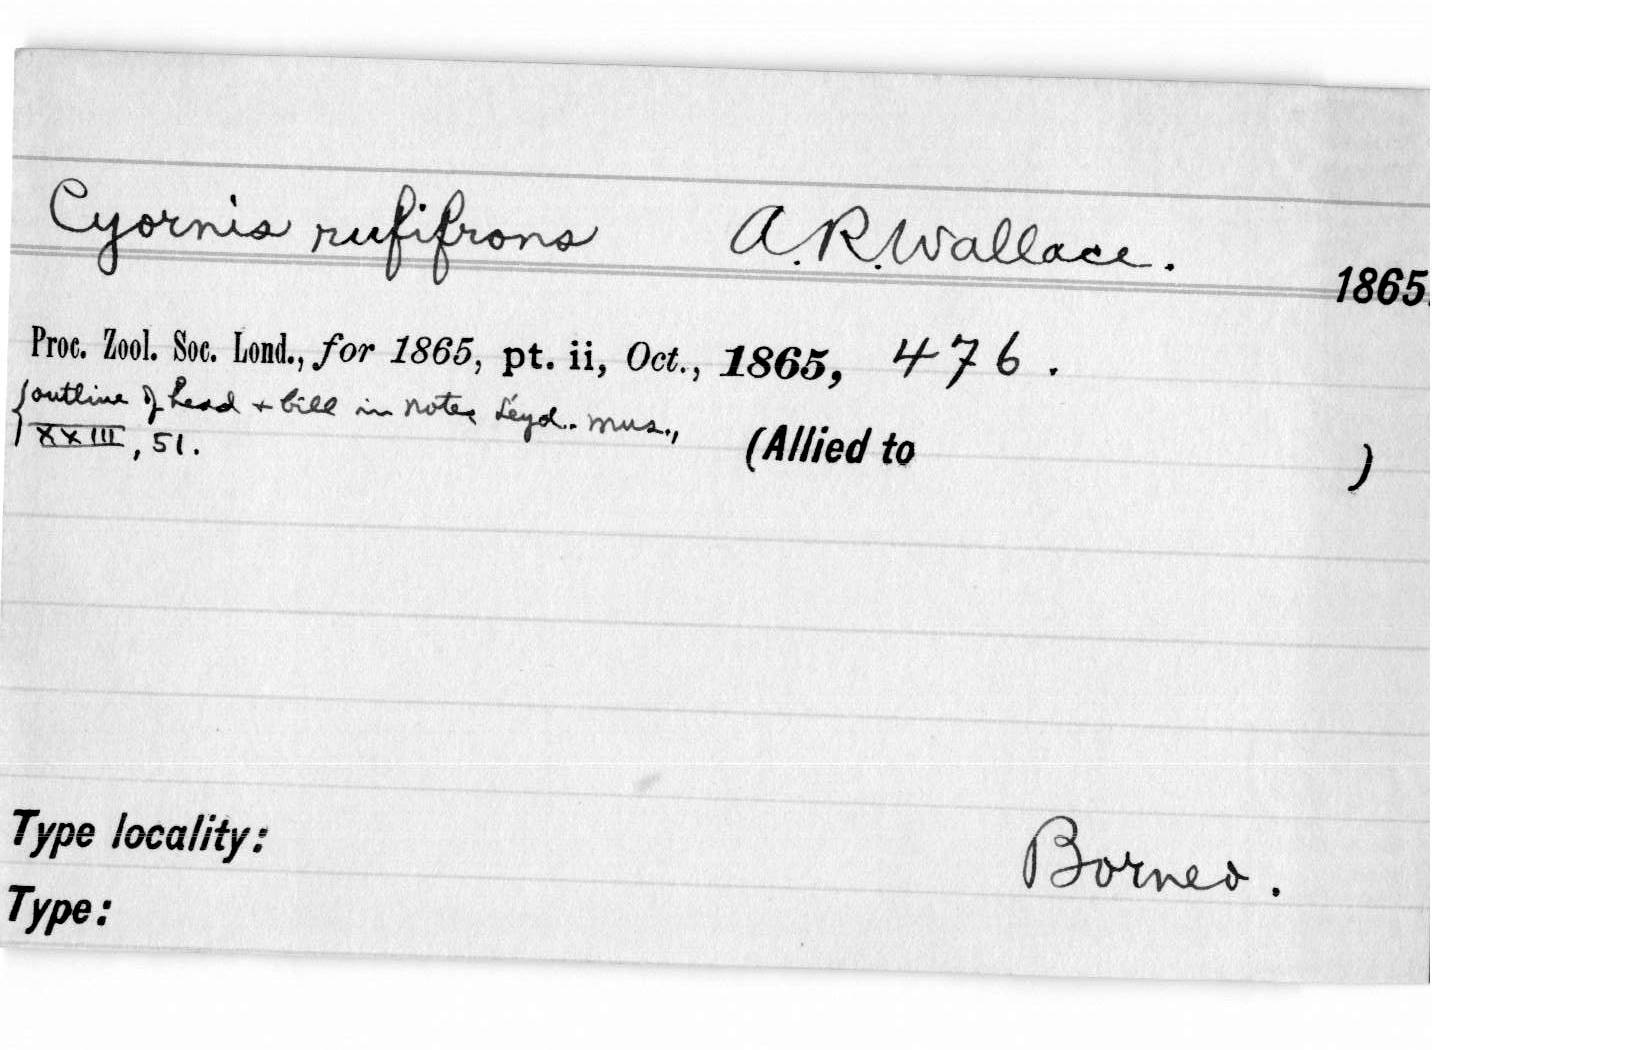 Cyornis rufifrons A.R.Wallace.
1865.
Proc. Zool. Soc. Lond., for 1865, pt. ii, Oct., 1865, 476.
{outline of head + bill in notes Leyd. mus.,
XXIII, 51.
(Allied to )
Type locality: Borneo.
Type: